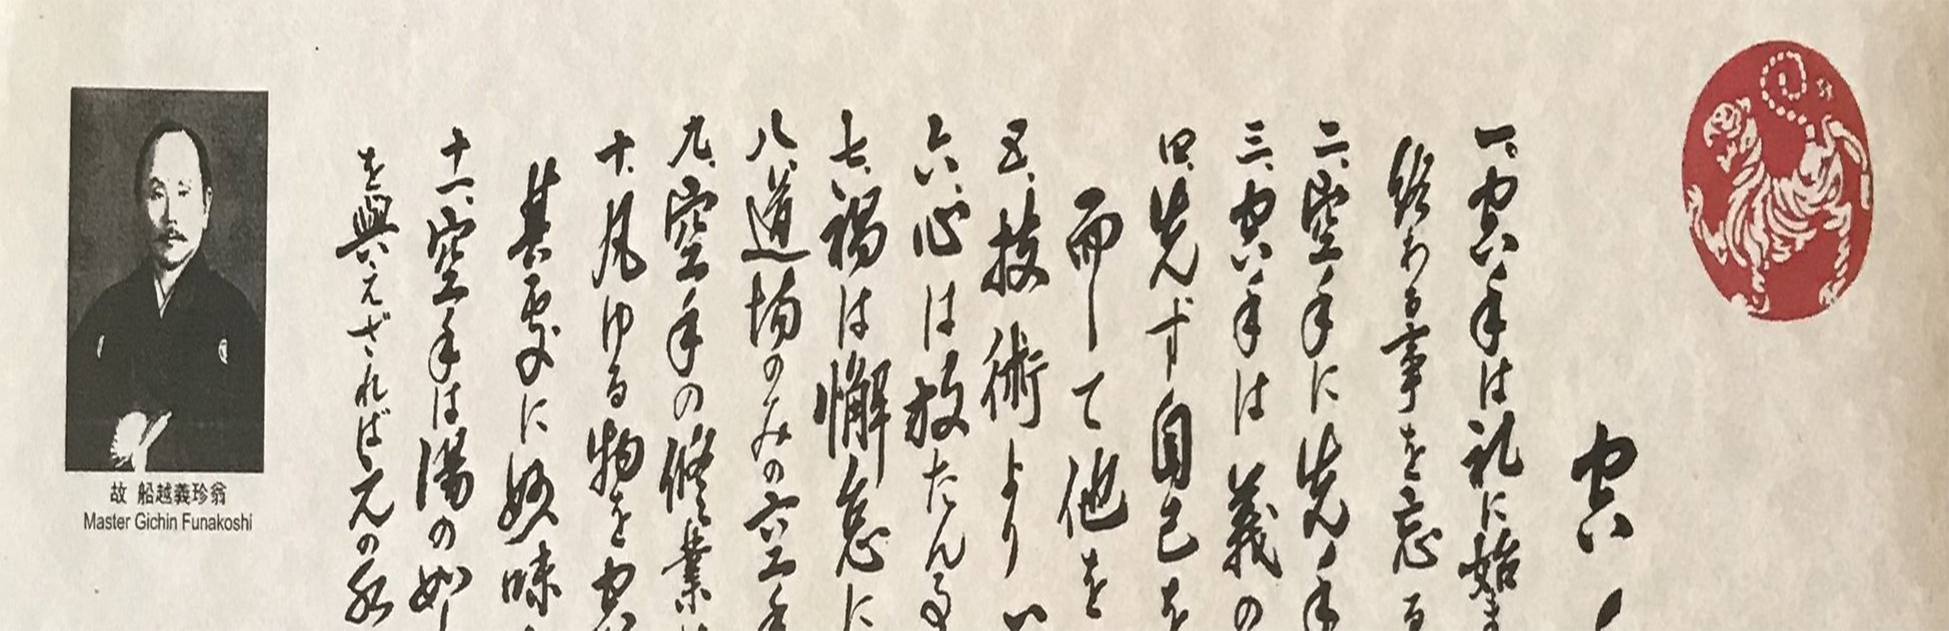 空
一、空手は礼に始ま
終わる事を忘る
二、空手に先手
三、空手は義の
四、先ず自己を
而して他を
五、技術より
六、心は放たん事
七、禍は懈怠に
八、道場のみの空手
九、空手の修業
十、凡ゆる物を空
其処に妙味
十一、空手は湯の如し
を與えざれば元の水
故 船越義珍翁
Master Gichin Funakoshi